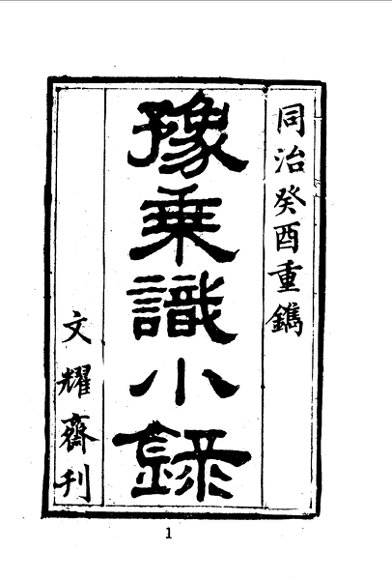 同治癸酉重鐫
豫乘識小錄
文耀齋刊
1